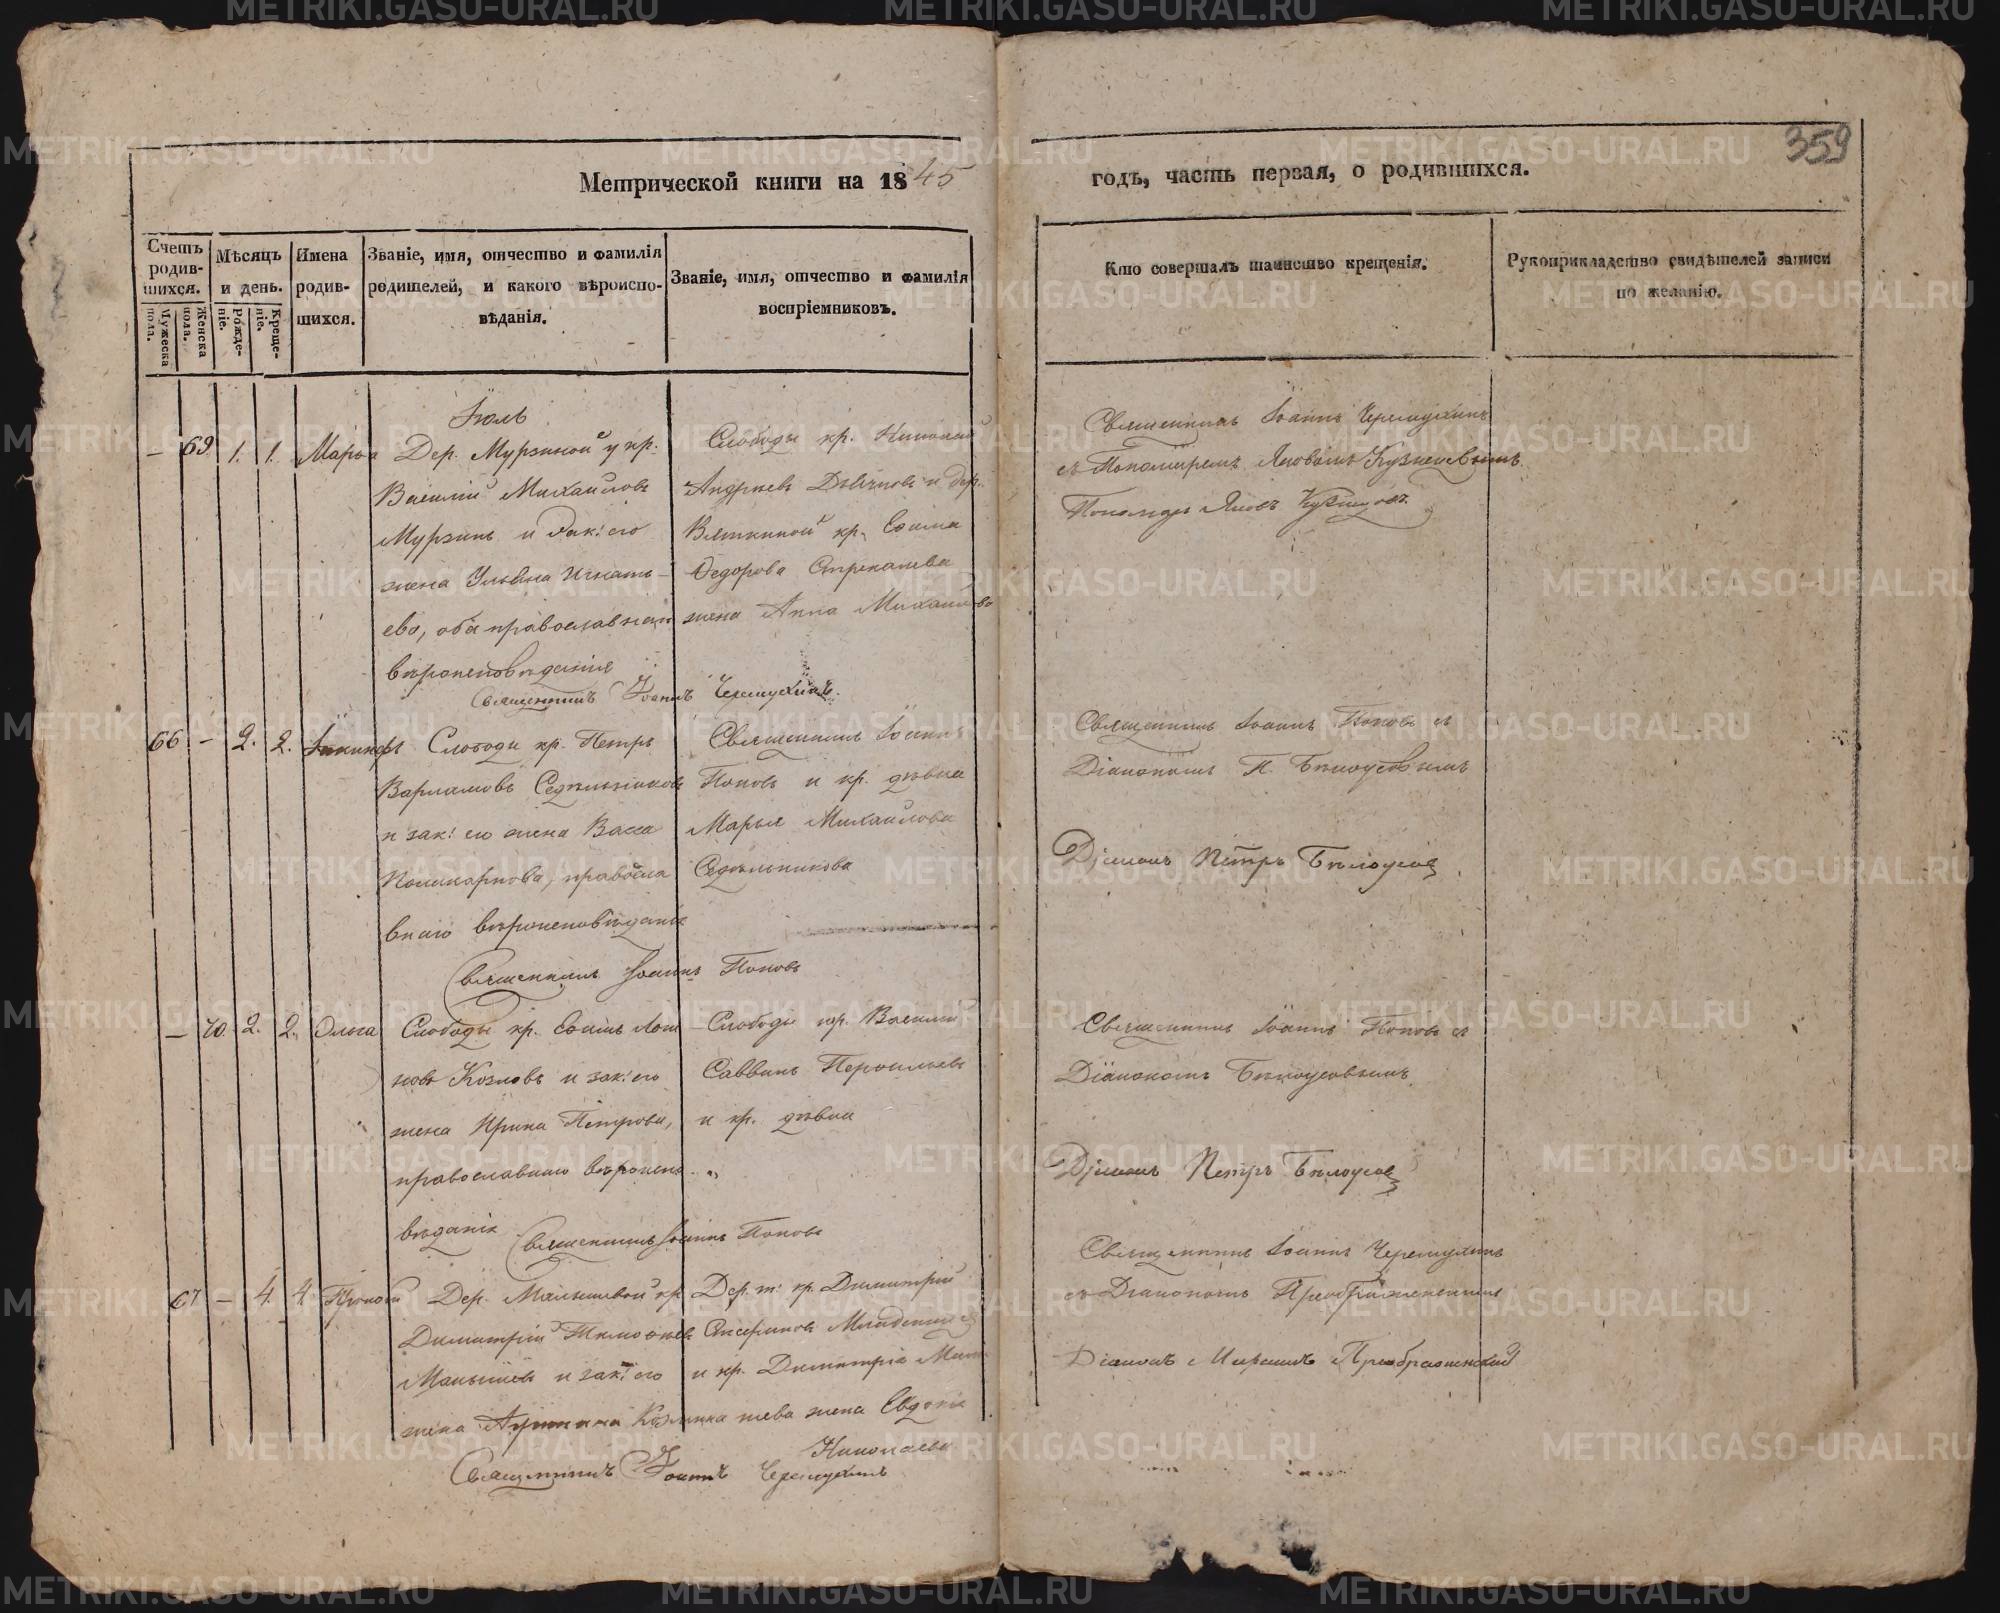 359
Метрической книги на 1845
годъ, часть первая, о родившихся.
Счетъ родив-шихся.
Мужеска пола.
Женска пола.
Мѣсяцъ и день.
Рожде-ніе.
Креще-ніе.
Имена родив-шихся.
Званіе, имя, отчество и фамилія
родителей, и какого вѣроиспо-
вѣданія.
Званіе, имя, отчество и фамилія
воспріемниковъ.
Кто совершалъ таинство крещенія.
Рукоприкладство свидѣтелей записи
по желанію.
Іюль
— 69 1. 1. Марья
Дер. Мурзиной у кр.
Василій Михайловъ
Мурзинъ и зак: его
жена Ульяна Игнать-
ева, оба православнаго
вѣроисповѣданія
Слободы кр. Николай
Андреевъ и дер.
Вяткиной кр. Ефима
Федорова Стрекалева
жена Анна Михайлова
Священникъ Іоаннъ Черемухинъ.
Священникъ Іоаннъ Черемухинъ
съ Пономаремъ Яковомъ Кузнецовымъ
Пономарь Яковъ Кузнецовъ
66 — 2. 2. Іакинфъ
Слободы кр. Петръ
Варламовъ Седельниковъ
и зак: его жена Васса
Поликарпова, правосла
внаго вѣроисповѣданія
Священникъ Іоаннъ
Поповъ и кр. дѣвка
Марья Михайлова
Седельникова
Священникъ Іоаннъ Поповъ
Священникъ Іоаннъ Поповъ съ
Діакономъ П. Бѣлоусовымъ
Діаконъ Петръ Бѣлоусов
— 70. 2. 2. Ольга
Слободы кр. Ефимъ Логи
новъ Козловъ и зак: его
жена Ирина Петрова,
православнаго вѣроиспо
вѣданія
Слободы кр. Василій
Саввинъ
и кр. дѣвка
Священникъ Іоаннъ Поповъ
Священникъ Іоаннъ Поповъ съ
Діакономъ Бѣлоусовымъ.
Діаконъ Петръ Бѣлоусов
67 — 4. 4. Прокопій
Дер. Малышевой кр.
Димитрій Тимофеевъ
Малышевъ и зак: его
жена
Дер. т: кр. Димитрій
и кр. Димитрія Малы
шева жена Евдокія
Николаева
Священникъ Іоаннъ Черемухинъ
Священникъ Іоаннъ Черемухинъ
съ Діакономъ Преображенскимъ
Діаконъ Преображенскій
METRIKI.GASO-URAL.RU